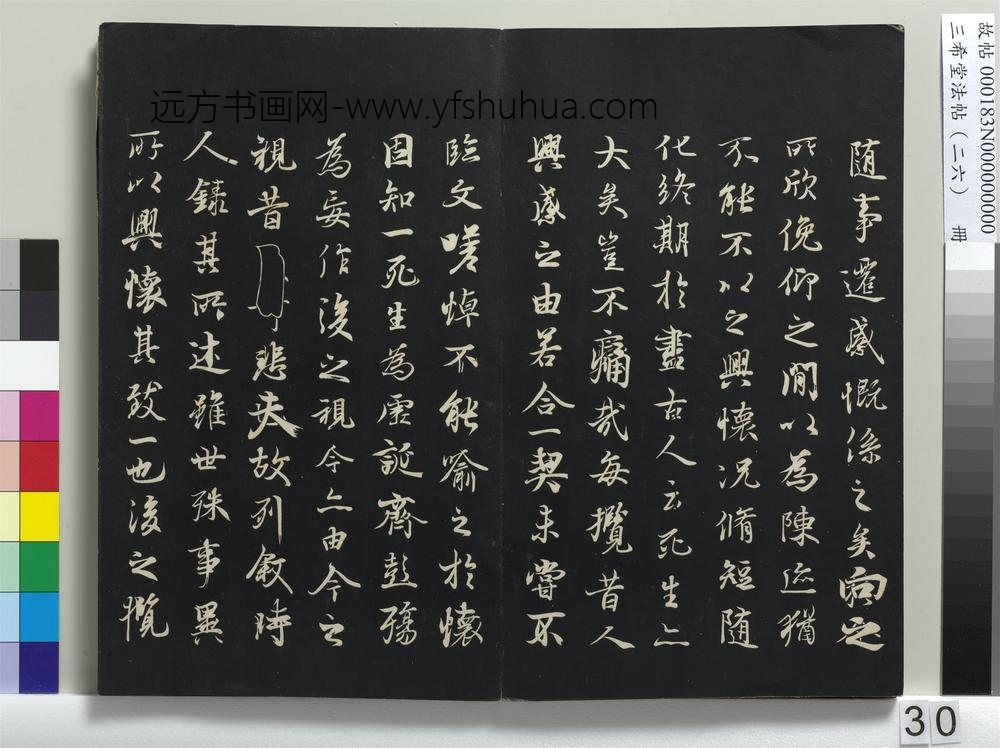 远方书画网-www.yfshuhua.com
随事遷感慨係之矣向之
所欣俛仰之間以為陳迹猶
不能不以之興懷況脩短随
化終期於盡古人云死生亦
大矣豈不痛哉每攬昔人
興感之由若合一契未嘗不
臨文嗟悼不能喻之於懷
固知一死生為虛誕齊彭殤
為妄作後之視今亦由今之
視昔悲夫故列敘時
人錄其所述雖世殊事異
所以興懷其致一也後之攬
故帖 000183N000000000
三希堂法帖（二六） 冊
30